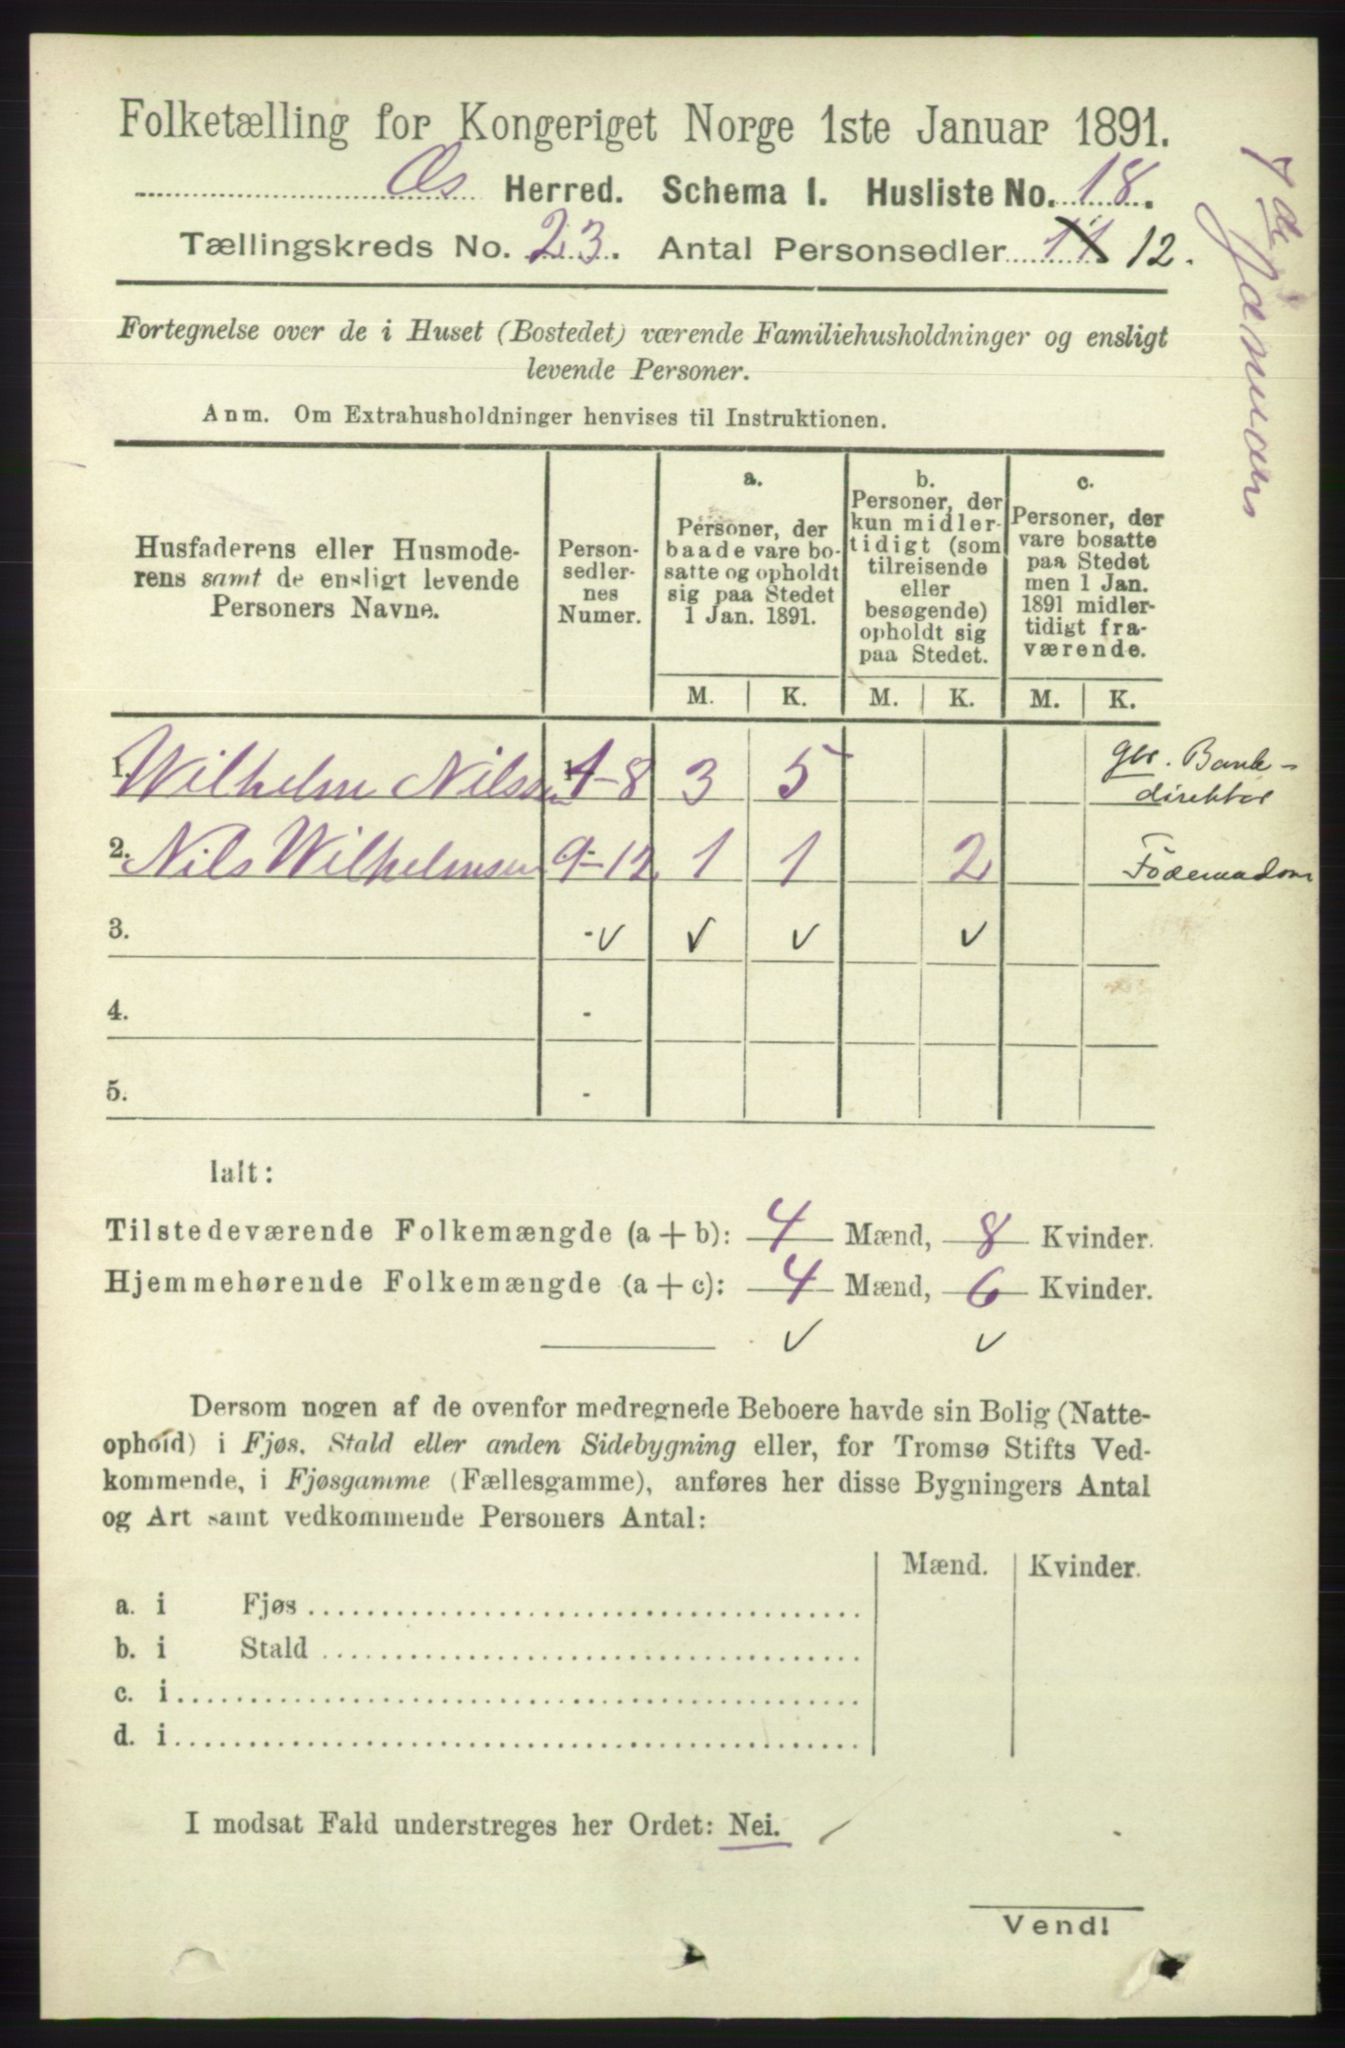 Folketælling for Kongeriget Norge 1ste Januar 1891.
Os Herred. Schema I. Husliste No. 18.
Tællingskreds No. 23. Antal Personsedler 11 12.
7de Januar
Fortegnelse over de i Huset (Bostedet) værende Familiehusholdninger og ensligt
levende Personer.
Anm. Om Extrahusholdninger henvises til Instruktionen.
Husfaderens eller Husmode-
rens samt de ensligt levende
Personers Navne.
Person-
sedler-
nes
Numer.
a.
Personer, der
baade vare bo-
satte og opholdt
sig paa Stedet
1 Jan. 1891.
b.
Personer, der
kun midler-
tidigt (som
tilreisende
eller
besøgende)
opholdt sig
paa Stedet.
c.
Personer, der
vare bosatte
paa Stedet
men 1 Jan.
1891 midler-
tidigt fra-
værende.
M. K. M. K. M. K.
1. Wilhelm Nilssen 1-8 3 5
Bank-
direktør
2. Nils Wilhelmsen 9-12 1 1 2
3. - ✓ ✓ ✓ ✓
4. -
5. -
Ialt:
Tilstedeværende Folkemængde (a + b): 4 Mænd, 8 Kvinder.
Hjemmehørende Folkemængde (a + c): 4 Mænd, 6 Kvinder.
✓ ✓
Dersom nogen af de ovenfor medregnede Beboere havde sin Bolig (Natte-
ophold) i Fjøs, Stald eller anden Sidebygning eller, for Tromsø Stifts Ved-
kommende, i Fjøsgamme (Fællesgamme), anføres her disse Bygningers Antal
og Art samt vedkommende Personers Antal:
Mænd. Kvinder.
a. i Fjøs
b. i Stald
c. i
d. i
I modsat Fald understreges her Ordet: Nei.
Vend!